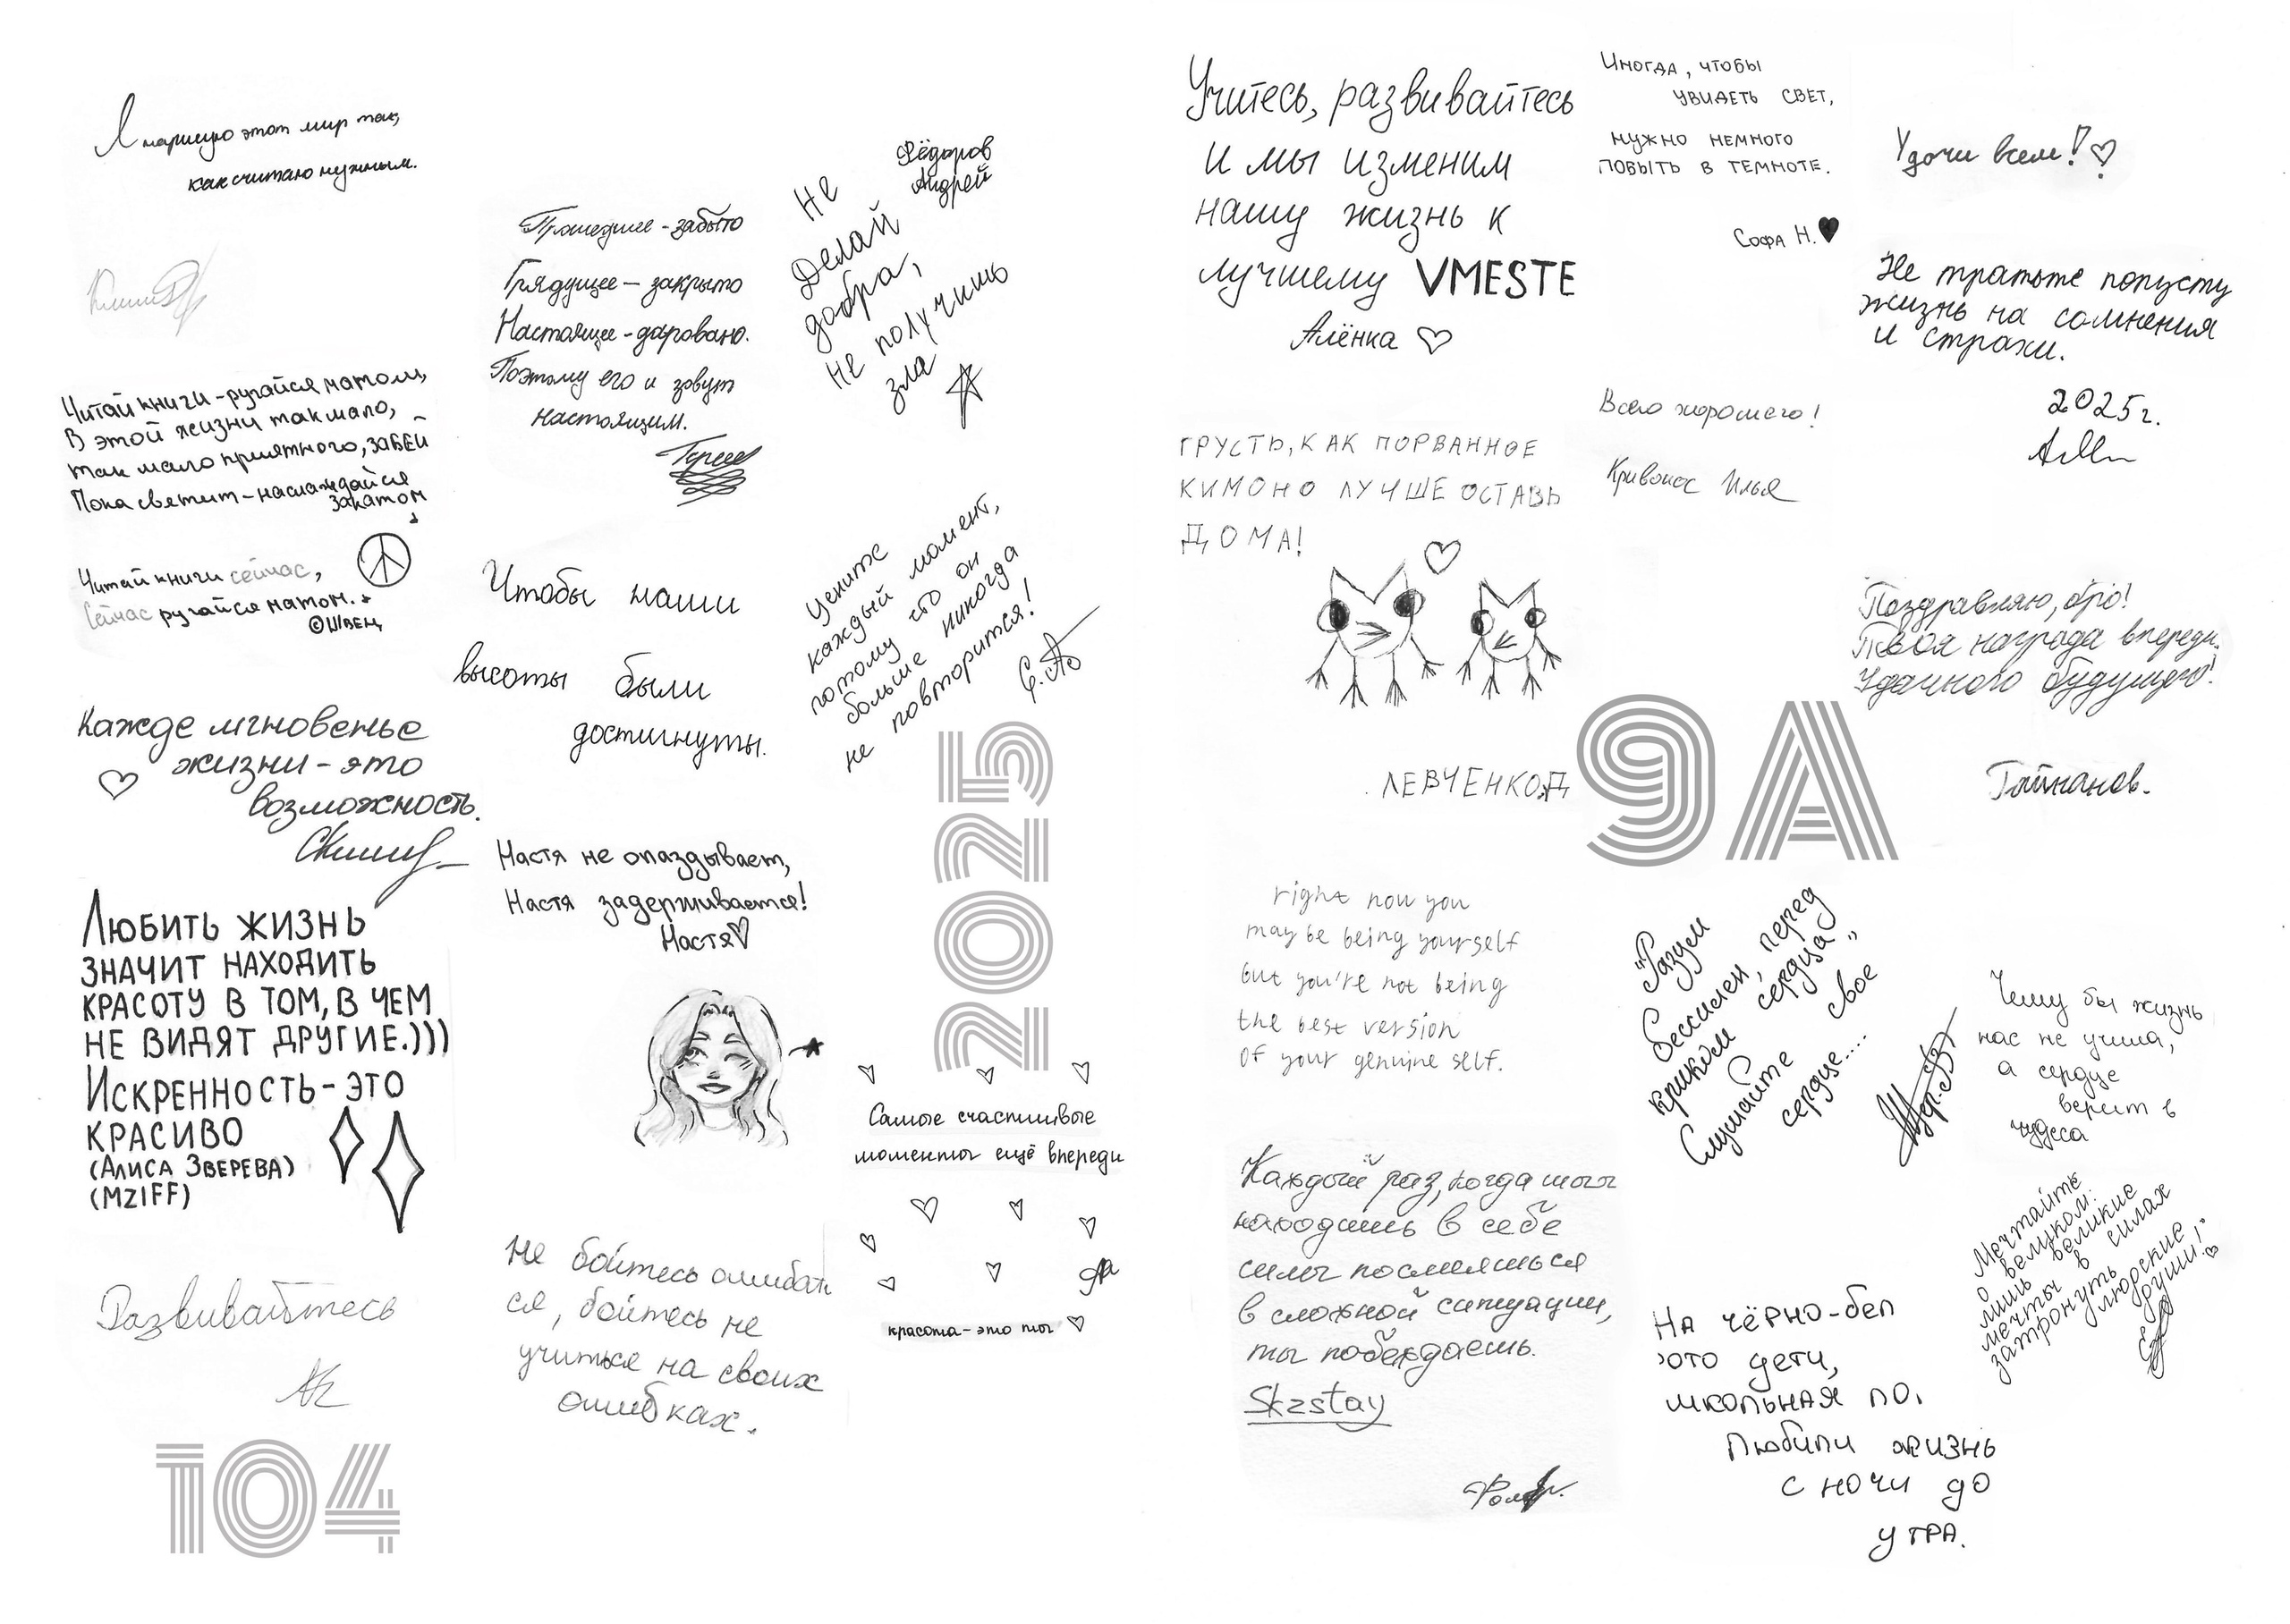 Я нарисую этот мир так,
как считаю нужным.
Читай книги - ругайся матом,
В этой жизни так мало,
так мало приятного, забей
Пока светит - наслаждайся
закатом
Читай книги сейчас,
Сейчас ругайся матом.
©ШВЕЦ
Кажде мгновенье
жизни - это
возможность.
Любить жизнь
значит находить
красоту в том, в чем
не видят другие.)))
Искренность - это
красиво
(Алиса Зверева)
(MZIFF)
Развивайтесь
104
Прошедшее - забыто
Грядущее - закрыто
Настоящее - даровано.
Поэтому его и зовут
настоящим.
Чтобы наши
высоты были
достигнуты.
Настя не опаздывает,
Настя задерживается!
Настя
Не бойтесь ошибать
ся, бойтесь не
учиться на своих
ошибках.
Фёдоров
Андрей
Не
Делай
добра,
не получишь
зла
Цените
каждый момент,
потому что он
больше никогда
не повторится!
2025
Самые счастливые
моменты ещё впереди
красота - это ты
Учитесь, развивайтесь
и мы изменим
нашу жизнь к
лучшему VMESTE
Алёнка
ГРУСТЬ, КАК ПОРВАННОЕ
КИМОНО ЛУЧШЕ ОСТАВЬ
ДОМА!
ЛЕВЧЕНКО.Д
right now you
may be being yourself
but you're not being
the best version
of your genuine self.
Каждый раз, когда ты
находишь в себе
силы посмеяться
в сложной ситуации,
ты побеждаешь.
Skzstay
Иногда, чтобы
увидеть свет,
нужно немного
побыть в темноте.
Софа Н.
Всего хорошего!
Кривонос Илья
9А
"Разум
бессилен, перед
криком сердца"
Слушайте своё
сердце....
На чёрно-бел
ото дети,
школьная по.
Любили жизнь
с ночи до
утра.
Удачи всем!
Не тратьте попусту
жизнь на сомнения
и страхи.
2025г.
Поздравляю, бро!
Твоя награда впереди.
Удачного будущего!
Чему бы жизнь
нас не учила,
а сердце
верит в
чудеса
Мечтайте
о великом:
лишь великие
мечты в силах
затронуть людские
души!